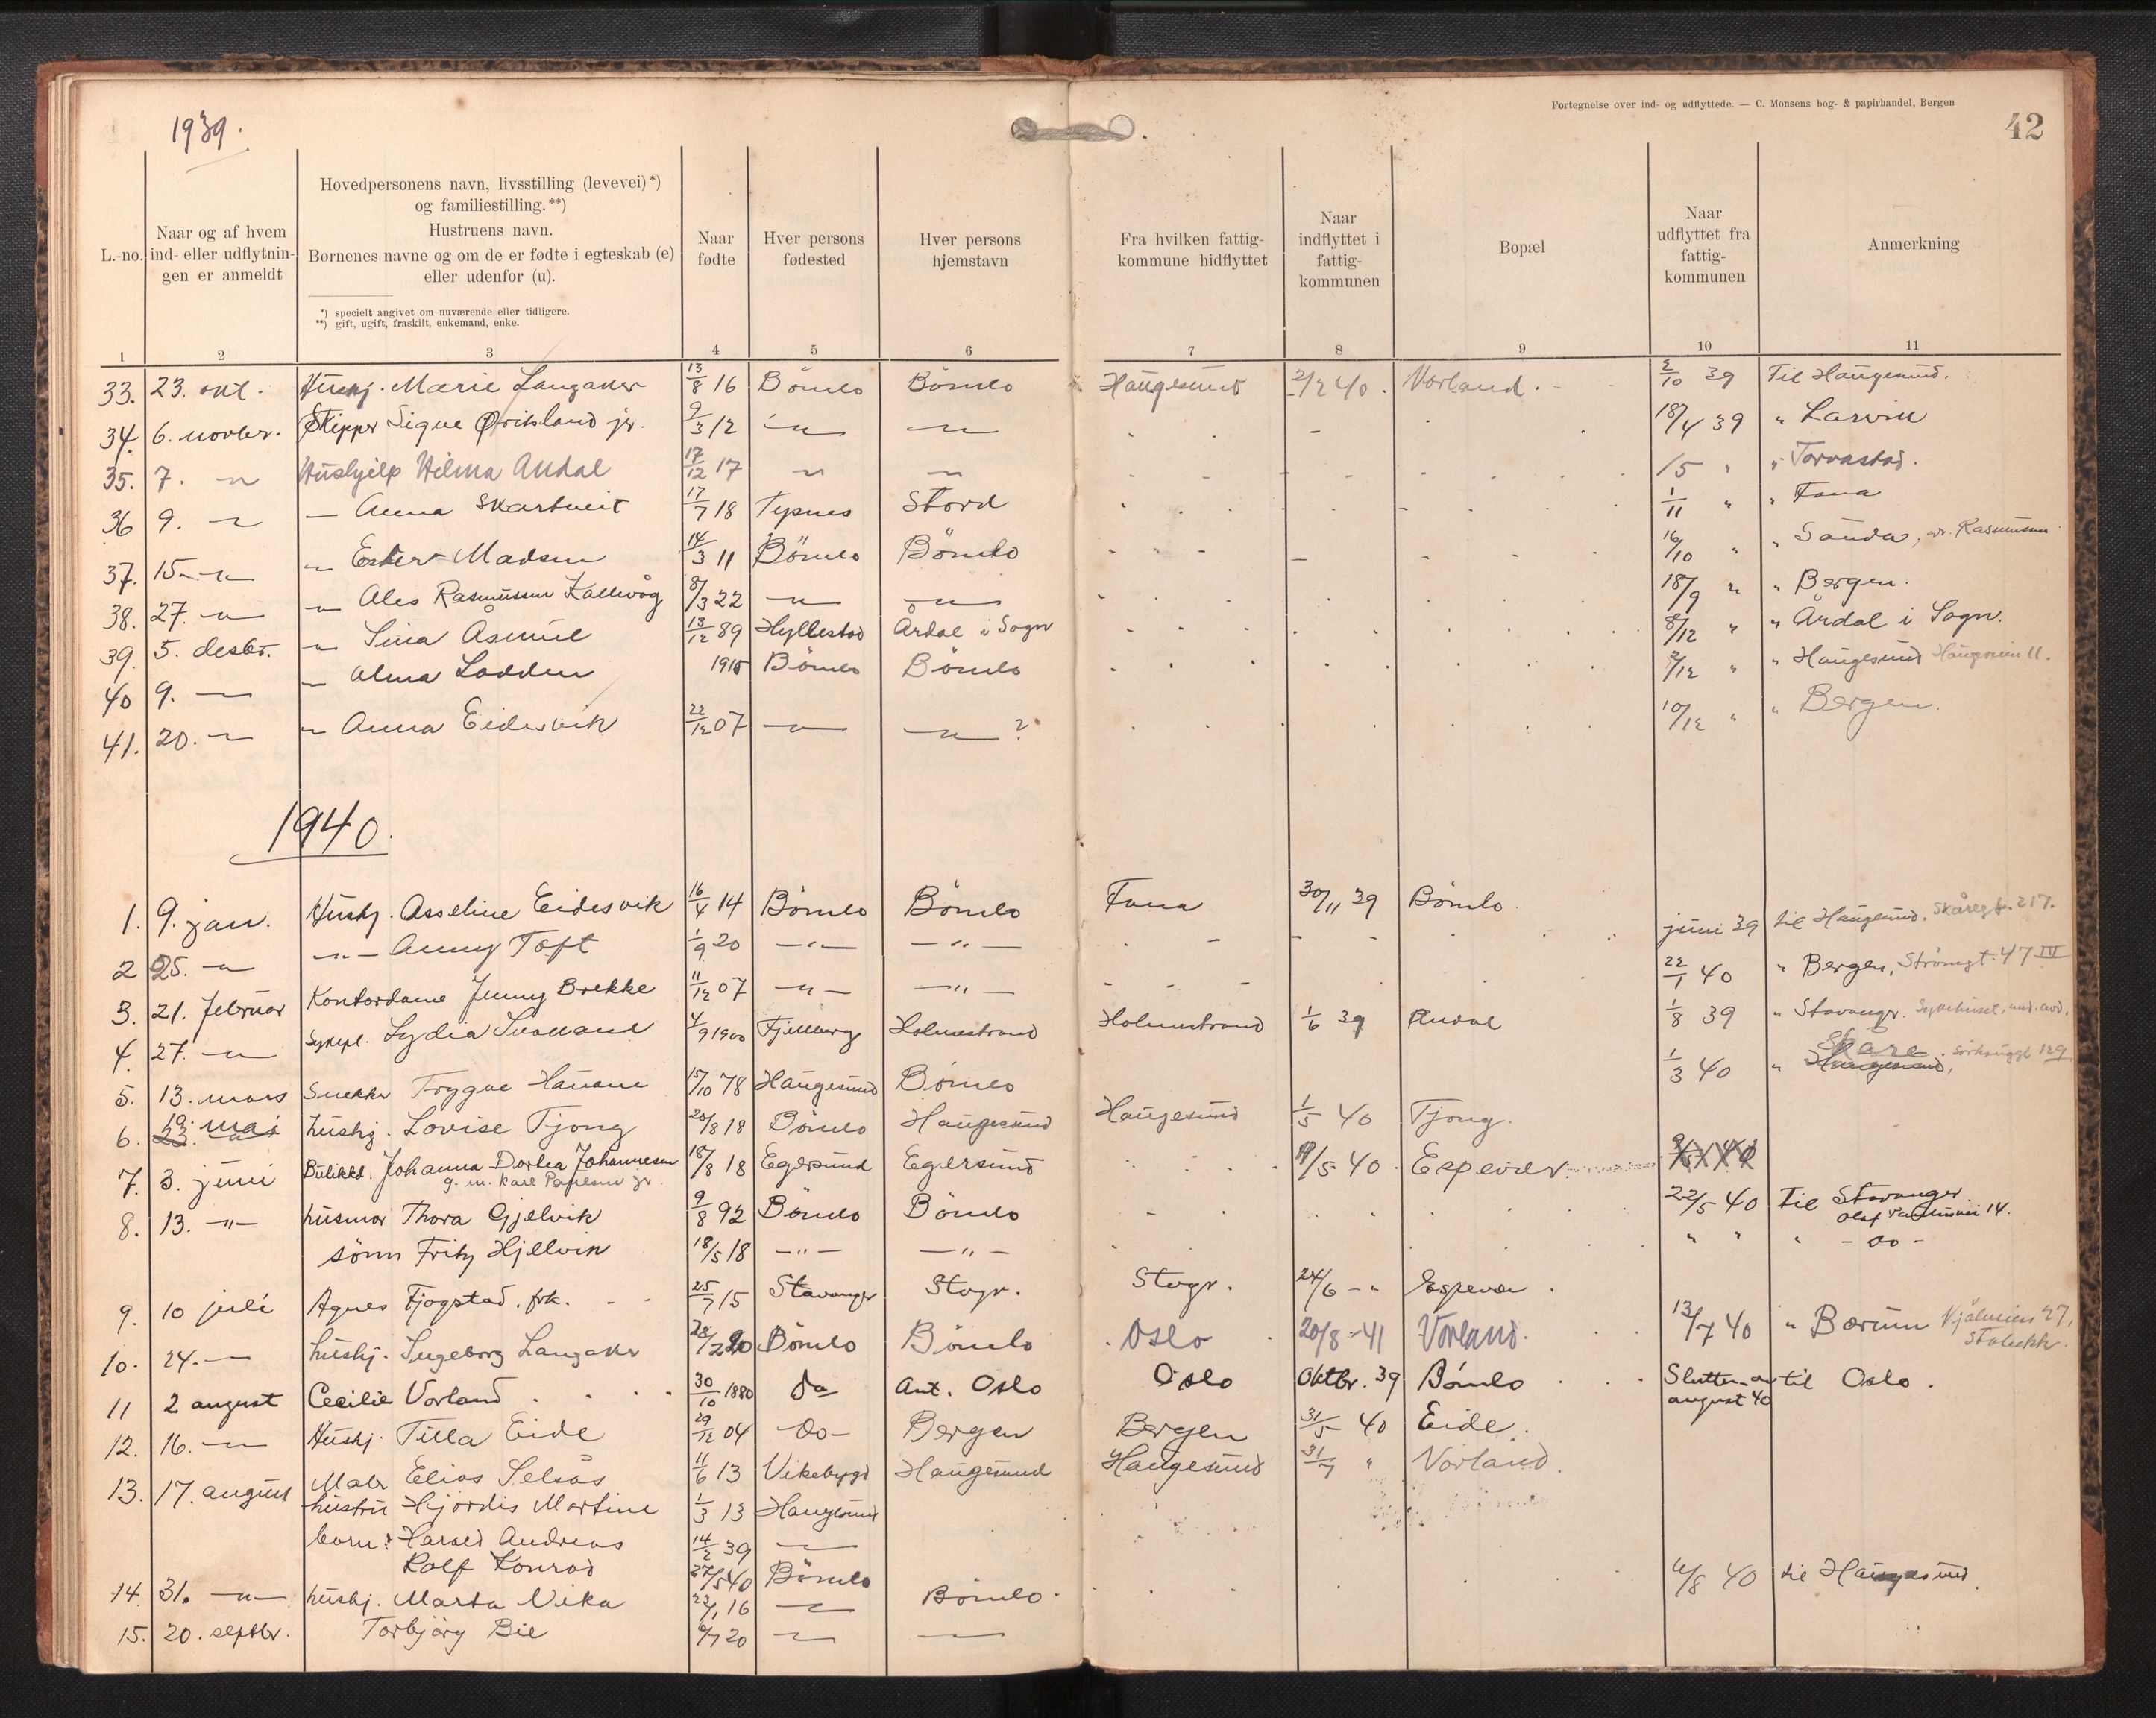 Fortegnelse over ind- og udflyttede. — C. Monsens bog- & papirhandel, Bergen
42
1939.
L.-no.
Naar og af hvem
ind- eller udflytnin-
gen er anmeldt
Hovedpersonens navn, livsstilling (levevei)*)
og familiestilling.**)
Hustruens navn.
Børnenes navne og om de er fødte i egteskab (e)
eller udenfor (u).
*) specielt angivet om nuværende eller tidligere.
**) gift, ugift, fraskilt, enkemand, enke.
Naar
fødte
Hver persons
fødested
Hver persons
hjemstavn
Fra hvilken fattig-
kommune hidflyttet
Naar
indflyttet i
fattig-
kommunen
Bopæl
Naar
udflyttet fra
fattig-
kommunen
Anmerkning
1 2 3 4 5 6 7 8 9 10 11
33. 23. okt. Hushj. Marie Langaker 13/8 16 Bömlo Bömlo Haugesund 2/2 40. Vorland. 2/10 39 Til Haugesund.
34. 6. novbr. Skipper Signe jr. 9/3 12 " " 18/4 39 " Larvik
35. 7. " Hushjelp Hilma Andal 17/12 17 " " 15 " " Torvastad.
36 9. " — Anna Skartveit 17/7 18 Tysnes Stord 1/11 " " Fana
37. 15. " " Ester Madsen 14/3 11 Bömlo Bömlo 16/10 " " Sauda, Rasmussen
38. 27. " " Ales Rasmussen Kallevåg 8/3 22 " " 18/9 " " Bergen.
39. 5. desbr. " Lina Åsmul 13/12 89 Hyllestad Årdal i Sogn 8/12 " " Årdal i Sogn.
40 9. " " Alma Lodden 1915 Bömlo Bömlo 2/12 " " Haugesund 11.
41. 20. " " Anna Eidesvik 22/12 07 " " ? 10/12 " " Bergen.
1940.
1. 9. jan. Hushj. Asseline Eidesvik 16/4 14 Bömlo Bömlo Fana 30/11 39 Bömlo. juni 39 til Haugesund. Skåregt. 217.
2 25. " " Anny Toft 1/9 20 " " 22/1 40 " Bergen, Strömgt. 47 IV
3. 21. februar Kontordame Jenny Brekke 11/12 07 " " 1/8 39 " Stavanger. Sykehuset, med. avd.
4. 27. " Sykepl. Lydia 4/9 1900 Fjelberg Holmestrand Holmestrand 1/6 39 Andal
5. 13. mars Snekker Trygve Hauane 15/10 78 Haugesund Bömlo 1/3 40 " Haugesund, Skare. 129
6. 19. mai hushj. Lovise Tjong 20/8 18 Bömlo Haugesund Haugesund 1/5 40 Tjong.
7. 3. juni Butikkd. Johanna Dortea Johannesen 18/8 18 Egersund Egersund 19/5 40 Espevær.
g. m. Karl Paulsen jr.
8. 13. " husmor Thora Gjelvik 9/8 92 Bömlo Bömlo 22/5 40 Til Stavanger
14.
sönn Fritz Hjellvik 18/5 18 " " " " " - Do -
9. 10 juli Agnes Fjogstad. frk. 25/7 15 Stavanger Stvgr. Stvgr. 24/6 " Espevær.
10. 24. " hushj. Ingeborg Langaker 28/2 20 Bömlo Bömlo Oslo 20/8 41 Vorland. 13/7 40 " Bærum 27,
Stabekk.
11 2 august Cecilie Vorland 30/10 1880 do Ant. Oslo Oslo Oktbr. 39 Bömlo Slutten av til Oslo.
august 40
12. 16. " Hushj. Tilla Eide 29/12 04 Do Bergen Bergen 31/5 40 Eide.
13. 17. august Maler Elias Selsås 11/6 13 Vikebygd Haugesund Haugesund 31/7 " Vorland.
hustru Hjördis Martine 1/3 13 Haugesund
barn: Harald Andreas 14/2 39 "
Rolf Konrad 27/5 40 Bömlo
14. 31. " hushj. Marta Vika 16 " Bömlo 6/8 40 til Haugesund.
15. 20. septbr. Torbjörg Bie 6/7 20 " "